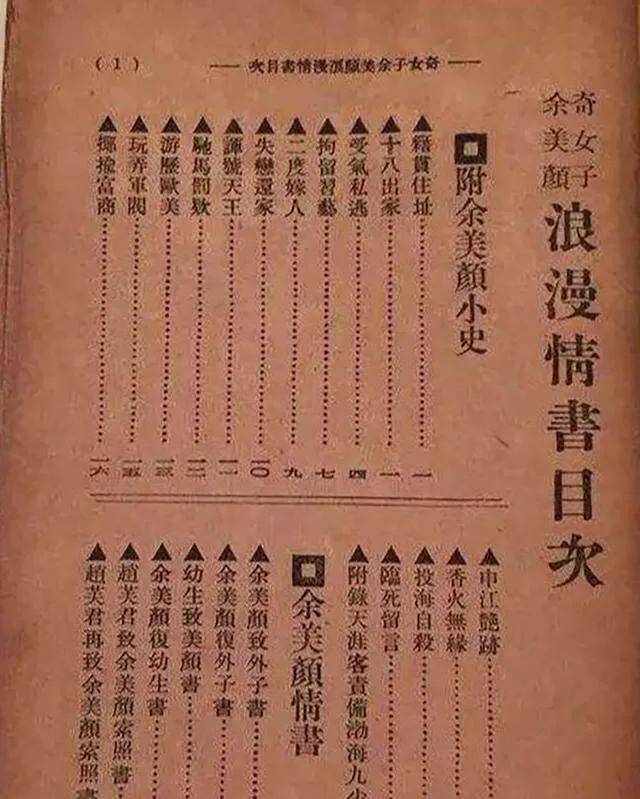 奇女子余美顏浪漫情書目次
(1)
奇女子
余美顏
浪漫情書目次
附余美顏小史
▲籍貫住址………一
▲十八出家………一
▲受氣私逃………四
▲拘留習藝………七
▲二度嫁人………九
▲失戀還家………一〇
▲諢號天王………一一
▲馳馬罰欵………一二
▲游歷歐美………一三
▲玩弄軍閥………一五
▲揶揄富商………一六
▲申江艷跡………
▲香火無緣………
▲投海自殺………
▲臨死留言………
▲附錄天涯客責備渤海九少
余美顏情書
▲余美顏致外子書………
▲余美顏復外子書………
▲幼生致美顏書………
▲余美顏復幼生書………
▲趙芙君致余美顏索照書…
▲趙芙君再致余美顏索照書